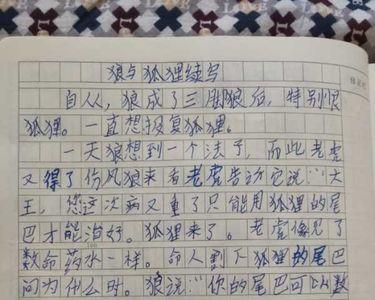 狼与狐狸续写
自从，狼成了三脚狼后，特别恨
狐狸。一直想报复狐狸。
一天狼想到一个法子，而此老虎
又得了伤风狼来看老虎告诉它说：“大
王，您这次病又重了只能用狐狸的尾
巴才能治好。狐狸来了。老虎像见了
救命药水一样。命人割下狐狸的尾巴
问为什么时。狼说：“你的尾巴可以救
100